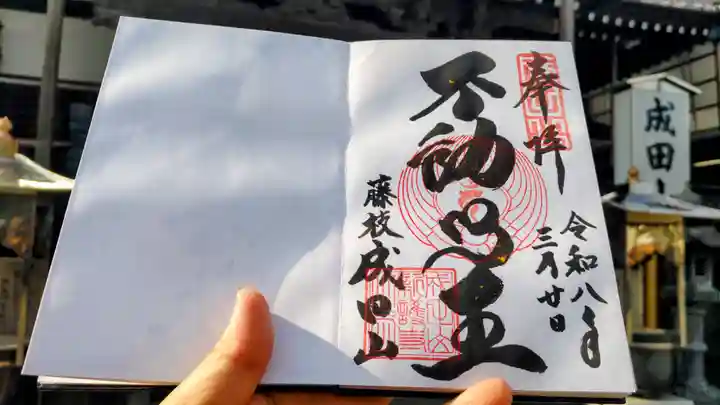 奉拝
令和八年
三月廿日
不動明王
藤枝成田山
成田